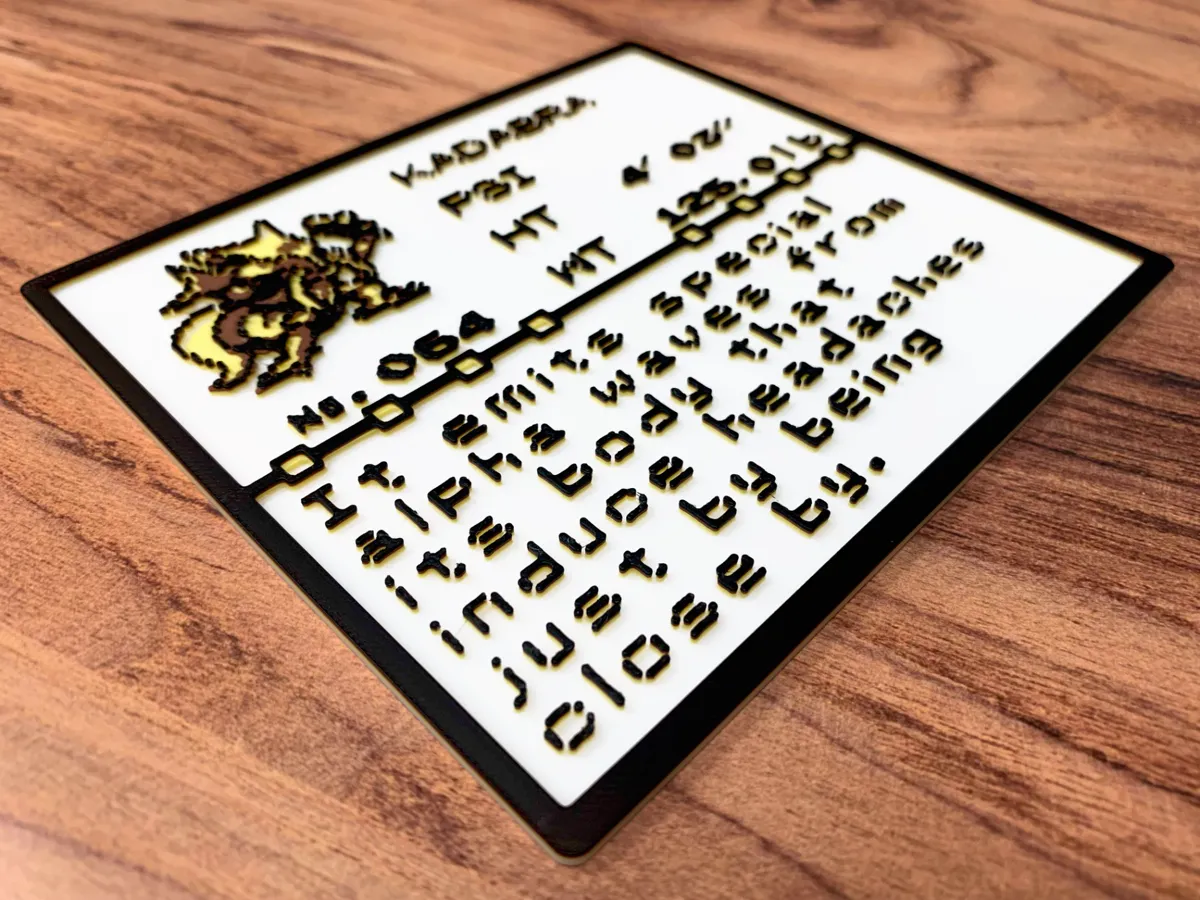 KADABRA
PSI
HT 4' 03"
WT 125.0lb
No. 064
It emits special
alpha waves from
its body that
induce headaches
just by being
close by.